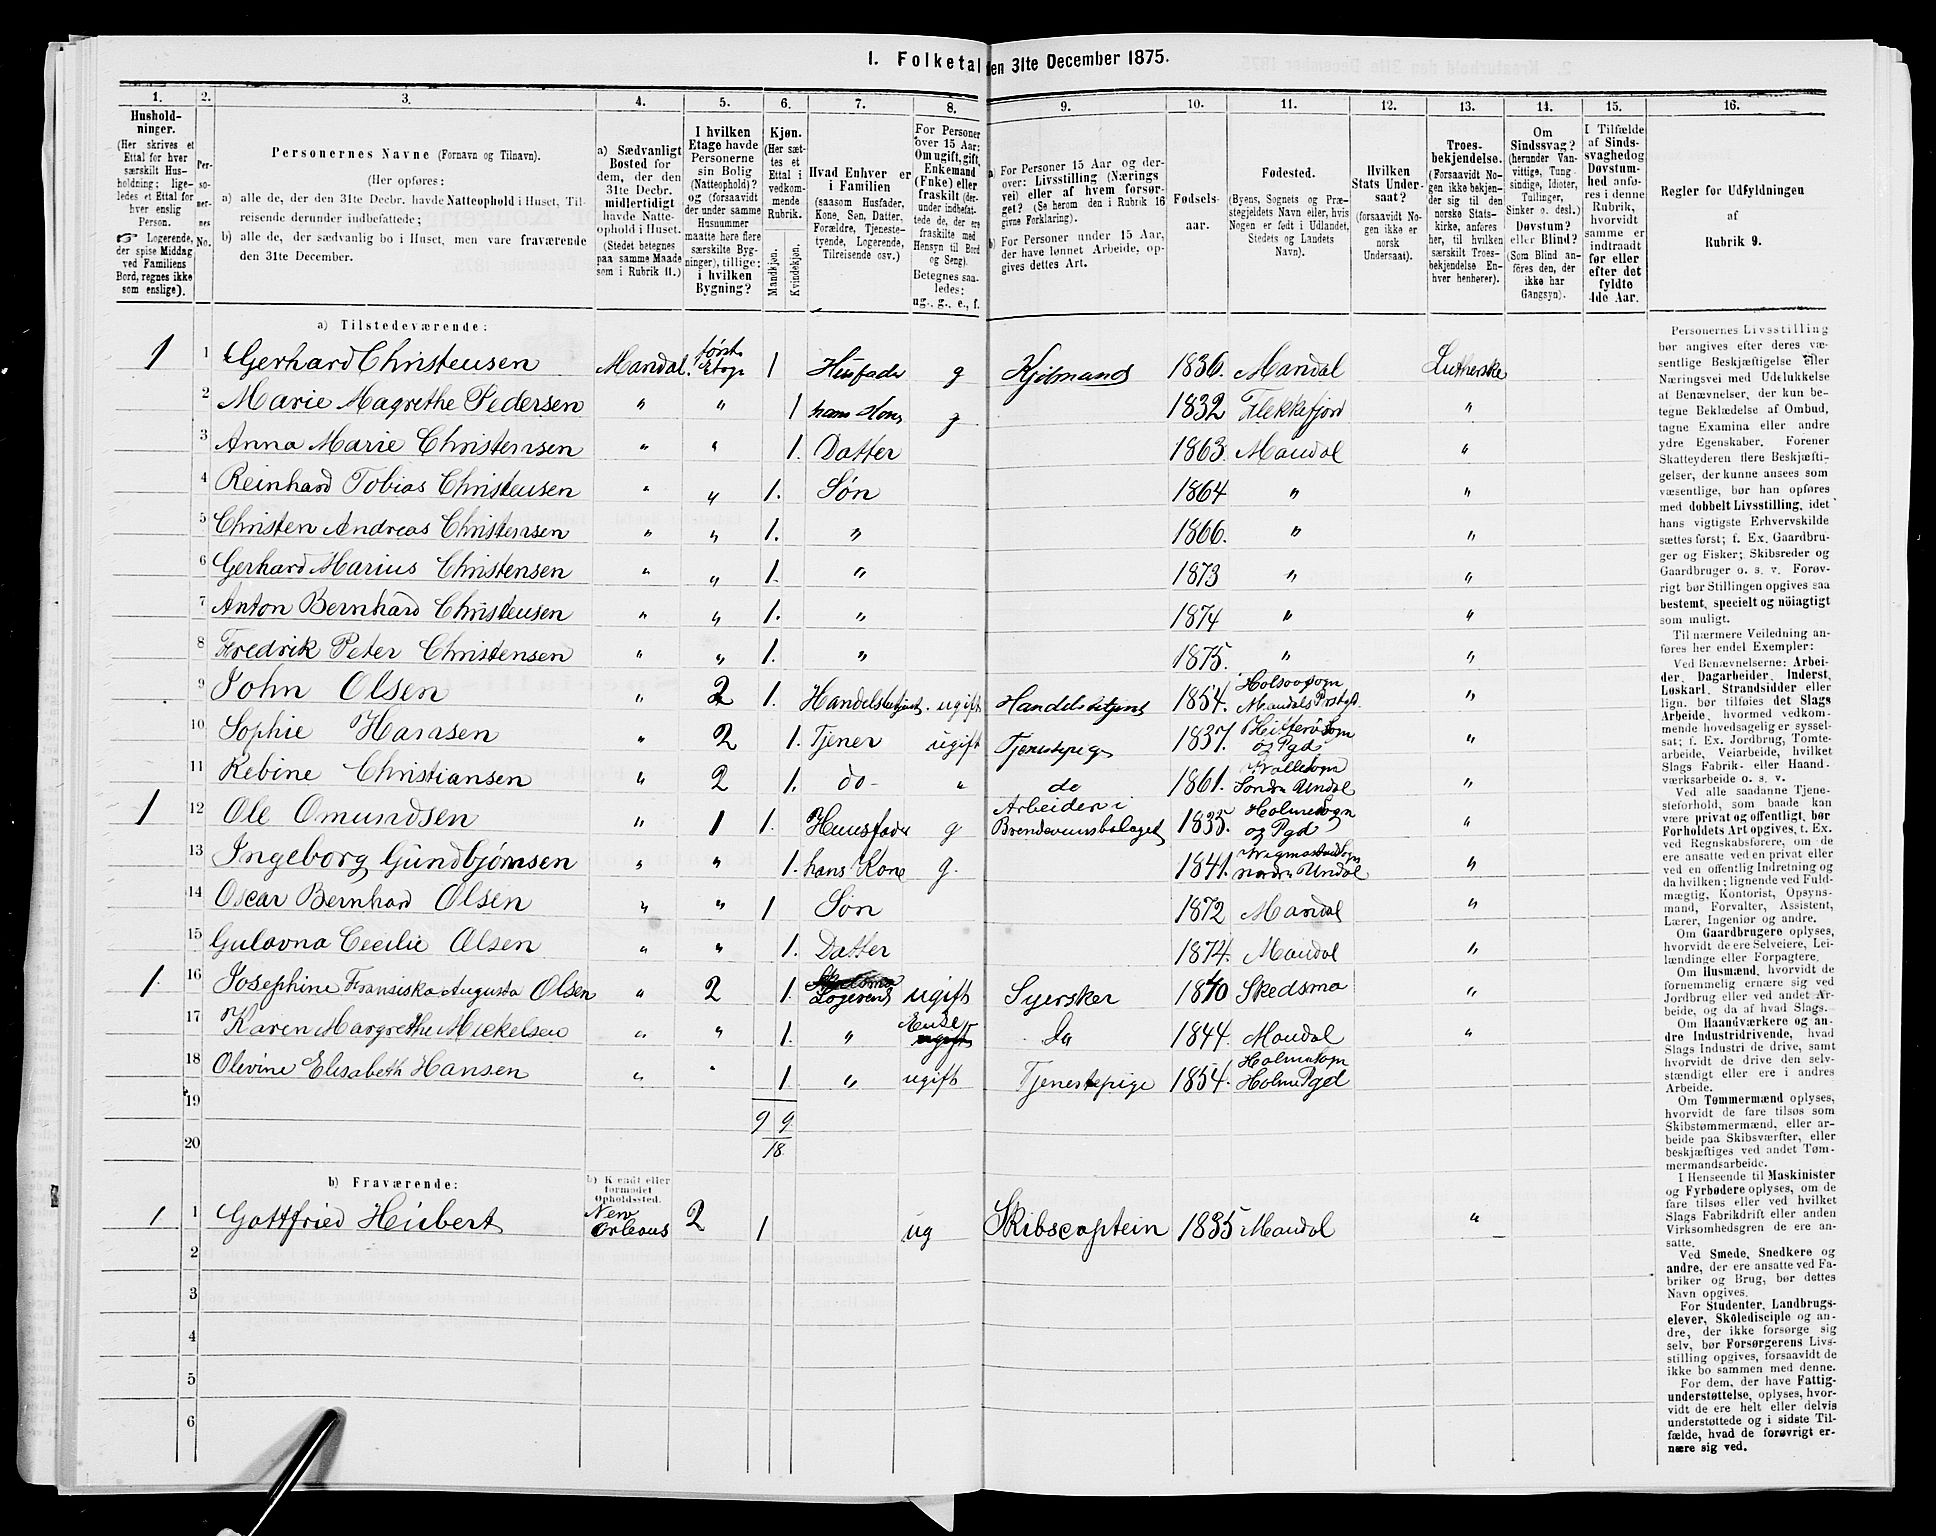 1. Folketal den 31te December 1875.
1. 2. 3. 4. 5. 6. 7. 8. 9. 10. 11. 12. 13. 14. 15. 16.
Hushold-
ninger.
(Her skrives et
Ettal for hver
særskilt Hus-
holdning; lige-
ledes et Ettal for
hver enslig
Person.
Logerende,
der spise Middag
ved Familiens
Bord, regnes ikke
som enslige).
Per-
so-
ner-
nes
No.
Personernes Navne (Fornavn og Tilnavn).
(Her opføres:
a) alle de, der den 31te Decbr. havde Natteophold i Huset, Til-
reisende derunder indbefattede;
b) alle de, der sædvanlig bo i Huset, men vare fraværende
den 31te December).
a) Sædvanligt
Bosted for
dem, der den
31te Decbr.
midlertidigt
havde Natte-
ophold i Huset.
(Stedet betegnes
paa samme Maade
som i Rubrik 11.)
I hvilken
Etage havde
Personerne
sin Bolig
(Natteophold)?
og (forsaavidt
der under samme
Husnummer
maatte høre flere
særskilte Byg-
ninger), tillige:
i hvilken
Bygning?
Kjøn.
(Her sæt-
tes et
Ettal i
vedkom-
mende
Rubrik.
Mandkjøn.
Kvindekjøn.
Hvad Enhver er
i Familien
(saasom Husfader,
Kone, Søn, Datter,
Forældre, Tjeneste-
tyende, Logerende,
Tilreisende osv.)
For Personer
over 15 Aar:
Om ugift, gift,
Enkemand
(Enke) eller
fraskilt (der-
under indbefat-
tede de, der ere
fraskilte med
Hensyn til Bord
og Seng).
Betegnes saa-
ledes:
ug., g., e., f.
a) For Personer 15 Aar og der-
over: Livsstilling (Nærings
vei) eller af hvem forsør-
get? (Se herom den i Rubrik 16
givne Forklaring).
b) For Personer under 15 Aar,
der have lønnet Arbeide, op-
gives dettes Art.
Fødsels-
aar.
Fødested.
(Byens, Sognets og Præ-
stegjeldets Navn eller, hvis
Nogen er født i Udlandet,
Stedets og Landets
Navn).
Hvilken
Stats Under-
saat?
(forsaavidt No-
gen ikke er
norsk
Undersaat).
Troes-
bekjendelse.
(Forsaavidt No-
gen ikke bekjen-
der sig til den
norske Stats-
kirke, anføres
her, til hvilken
særskilt Troes-
bekjendelse En-
hver henhører).
Om
Sindssvag?
(herunder Van-
vittige, Tung-
sindige, Idioter,
Tullinger,
Sinker o. desl.)
Døvstum?
eller Blind?
(Som Blind an-
føres den, der
ikke har
Gangsyn).
I Tilfælde
af Sinds-
svaghed og
Døvstum-
hed anfø-
res i denne
Rubrik,
hvorvidt
samme er
indtraadt
før eller
efter det
fyldte
4de Aar.
Regler for Udfyldningen
af
Rubrik 9.
a) Tilstedeværende:
1 1 Gerhard Christensen Mandal. første Etage 1 Husfader g Kjøbmand 1836. Mandal Lutherske
2 Marie Magrethe Pedersen " " 1 hans Kone g 1832 Flekkefjord "
3 Anna Marie Christensen " " 1. Datter 1863. Mandal "
4 Reinhard Tobias Christensen " " 1. Søn 1864 " "
5 Christen Andreas Christensen " " 1. " 1866. " "
6 Gerhard Marius Christensen " " 1. " 1873 " "
7 Anton Bernhard Christensen " " 1. " 1874 " "
8 Fredrik Peter Christensen " " 1. " 1875. " "
9 John Olsen " 2 1. Handelsbetjent. ugift Handelsbetjent 1854. Mandals Prstgd. "
10 Sophie Hansen " 2 1. Tjener ugift Tjenestepige 1837. og Pgd "
11 Rebine Christiansen " 2 1. do - " do 1861. Søndre Undal "
1 12 Ole Omundsen " 1 1. Huusfader g Arbeider i 1835. Holmesogn og Pgd "
13 Ingeborg Gundbjørnsen " " 1. hans Kone g. 1841. Nordre Undal "
14 Oscar Bernhard Olsen " " 1 Søn 1872 Mandal "
15 Gulovna Cecilie Olsen " " 1. Datter 1874. Mandal "
1. 16 Josephine Fransiska Augusta Olsen " 2 1. Logerend ugift Syerske 1840 Skedsmo "
17 Karen Margrethe Mickelsen " " 1. " Enke ugift Do 1844. Mandal "
18 Olivine Elisabeth Hansen " " 1. " ugift Tjenestepige 1854. Holmesogn Holme Pgd
19
9 9
20
18.
b) Fraværende:
b) Kjendt eller
formodet
Opholdssted.
1 1 Gottfried Hiibert New Orleans 2 1 ug Skibscaptein 1835 Mandal "
2
3
4
5
6
Personernes Livsstilling
bør angives efter deres væ-
sentlige Beskjæftigelse eller
Næringsvei med Udelukkelse
af Benævnelser, der kun be-
tegne Beklædelse af Ombud,
tagne Examina eller andre
ydre Egenskaber. Forener
Skatteyderen flere Beskjæfti-
gelser, der kunne ansees som
væsentlige, bør han opføres
med dobbelt Livsstilling, idet
hans vigtigste Erhvervskilde
sættes først; f. Ex. Gaardbru-
ger og Fisker; Skibsreder og
Gaardbruger o. s. v. Forøv-
rigt bør Stillingen opgives saa
bestemt, specielt og nöiagtigt
som muligt.
Til nærmere Veiledning an-
føres her endel Exempler:
Ved Benævnelserne: Arbei-
der, Dagarbeider, Inderst,
Løskarl, Strandsidder eller
lign. bør tilføies det Slags
Arbeide, hvormed vedkom-
mende hovedsagelig er syssel-
sat; f. Ex. Jordbrug, Tomte-
arbeide, Veiarbeide, hvilket
Slags Fabrik- eller Haand-
værksarbeide o. s. v.
Ved alle saadanne Tjene-
steforhold, som baade kan
være privat og offentligt, bør
Forholdets Art opgives, t. Ex.
ved Regnskabsførere, om de
ere ansatte ved en privat eller
ved en offentlig Indretning og
da hvilken; lignende ved Fuld-
mægtig, Kontorist, Opsyns-
mand, Forvalter, Assistent,
Lærer, Ingeniør og andre.
Om Gaardbrugere oplyses,
hvorvidt de ere Selveiere, Lei-
lændinge eller Forpagtere.
Om Husmænd, hvorvidt de
fornemmelig ernære sig ved
Jordbrug eller ved andet Ar-
beide, og da af hvad Slags.
Om Haandværkere og an-
dre Industridrivende, hvad
Slags Industri de drive, samt
hvorvidt de drive den selv-
stændigt eller ere i andres
Arbeide.
Om Tømmermænd oplyses,
hvorvidt de fare tilsøs som
Skibstømmermænd, eller ar-
beide paa Skibsværfter, eller
beskjæftiges ved andet Tøm-
mermandsarbeide.
I Henseende til Maskinister
og Fyrbødere oplyses, om de
fare tilsøs eller ved hvilket
Slags Fabrikdrift eller anden
Virksomhedsgren de ere an-
satte.
Ved Smede, Snedkere og
andre, der ere ansatte ved Fa-
briker og Brug, bør dettes
Navn opgives.
For Studenter, Landbrugs-
elever, Skoledisciple og an-
dre, der ikke forsørge sig
selv, bør Forsørgerens Livs-
stilling opgives, forsaavidt de
ikke bo sammen med denne.
For dem, der have Fattig-
understøttelse, oplyses, hvor-
vidt de ere helt eller delvis
understøttede og i sidste Til-
fælde, hvad de forøvrigt er-
nære sig ved.